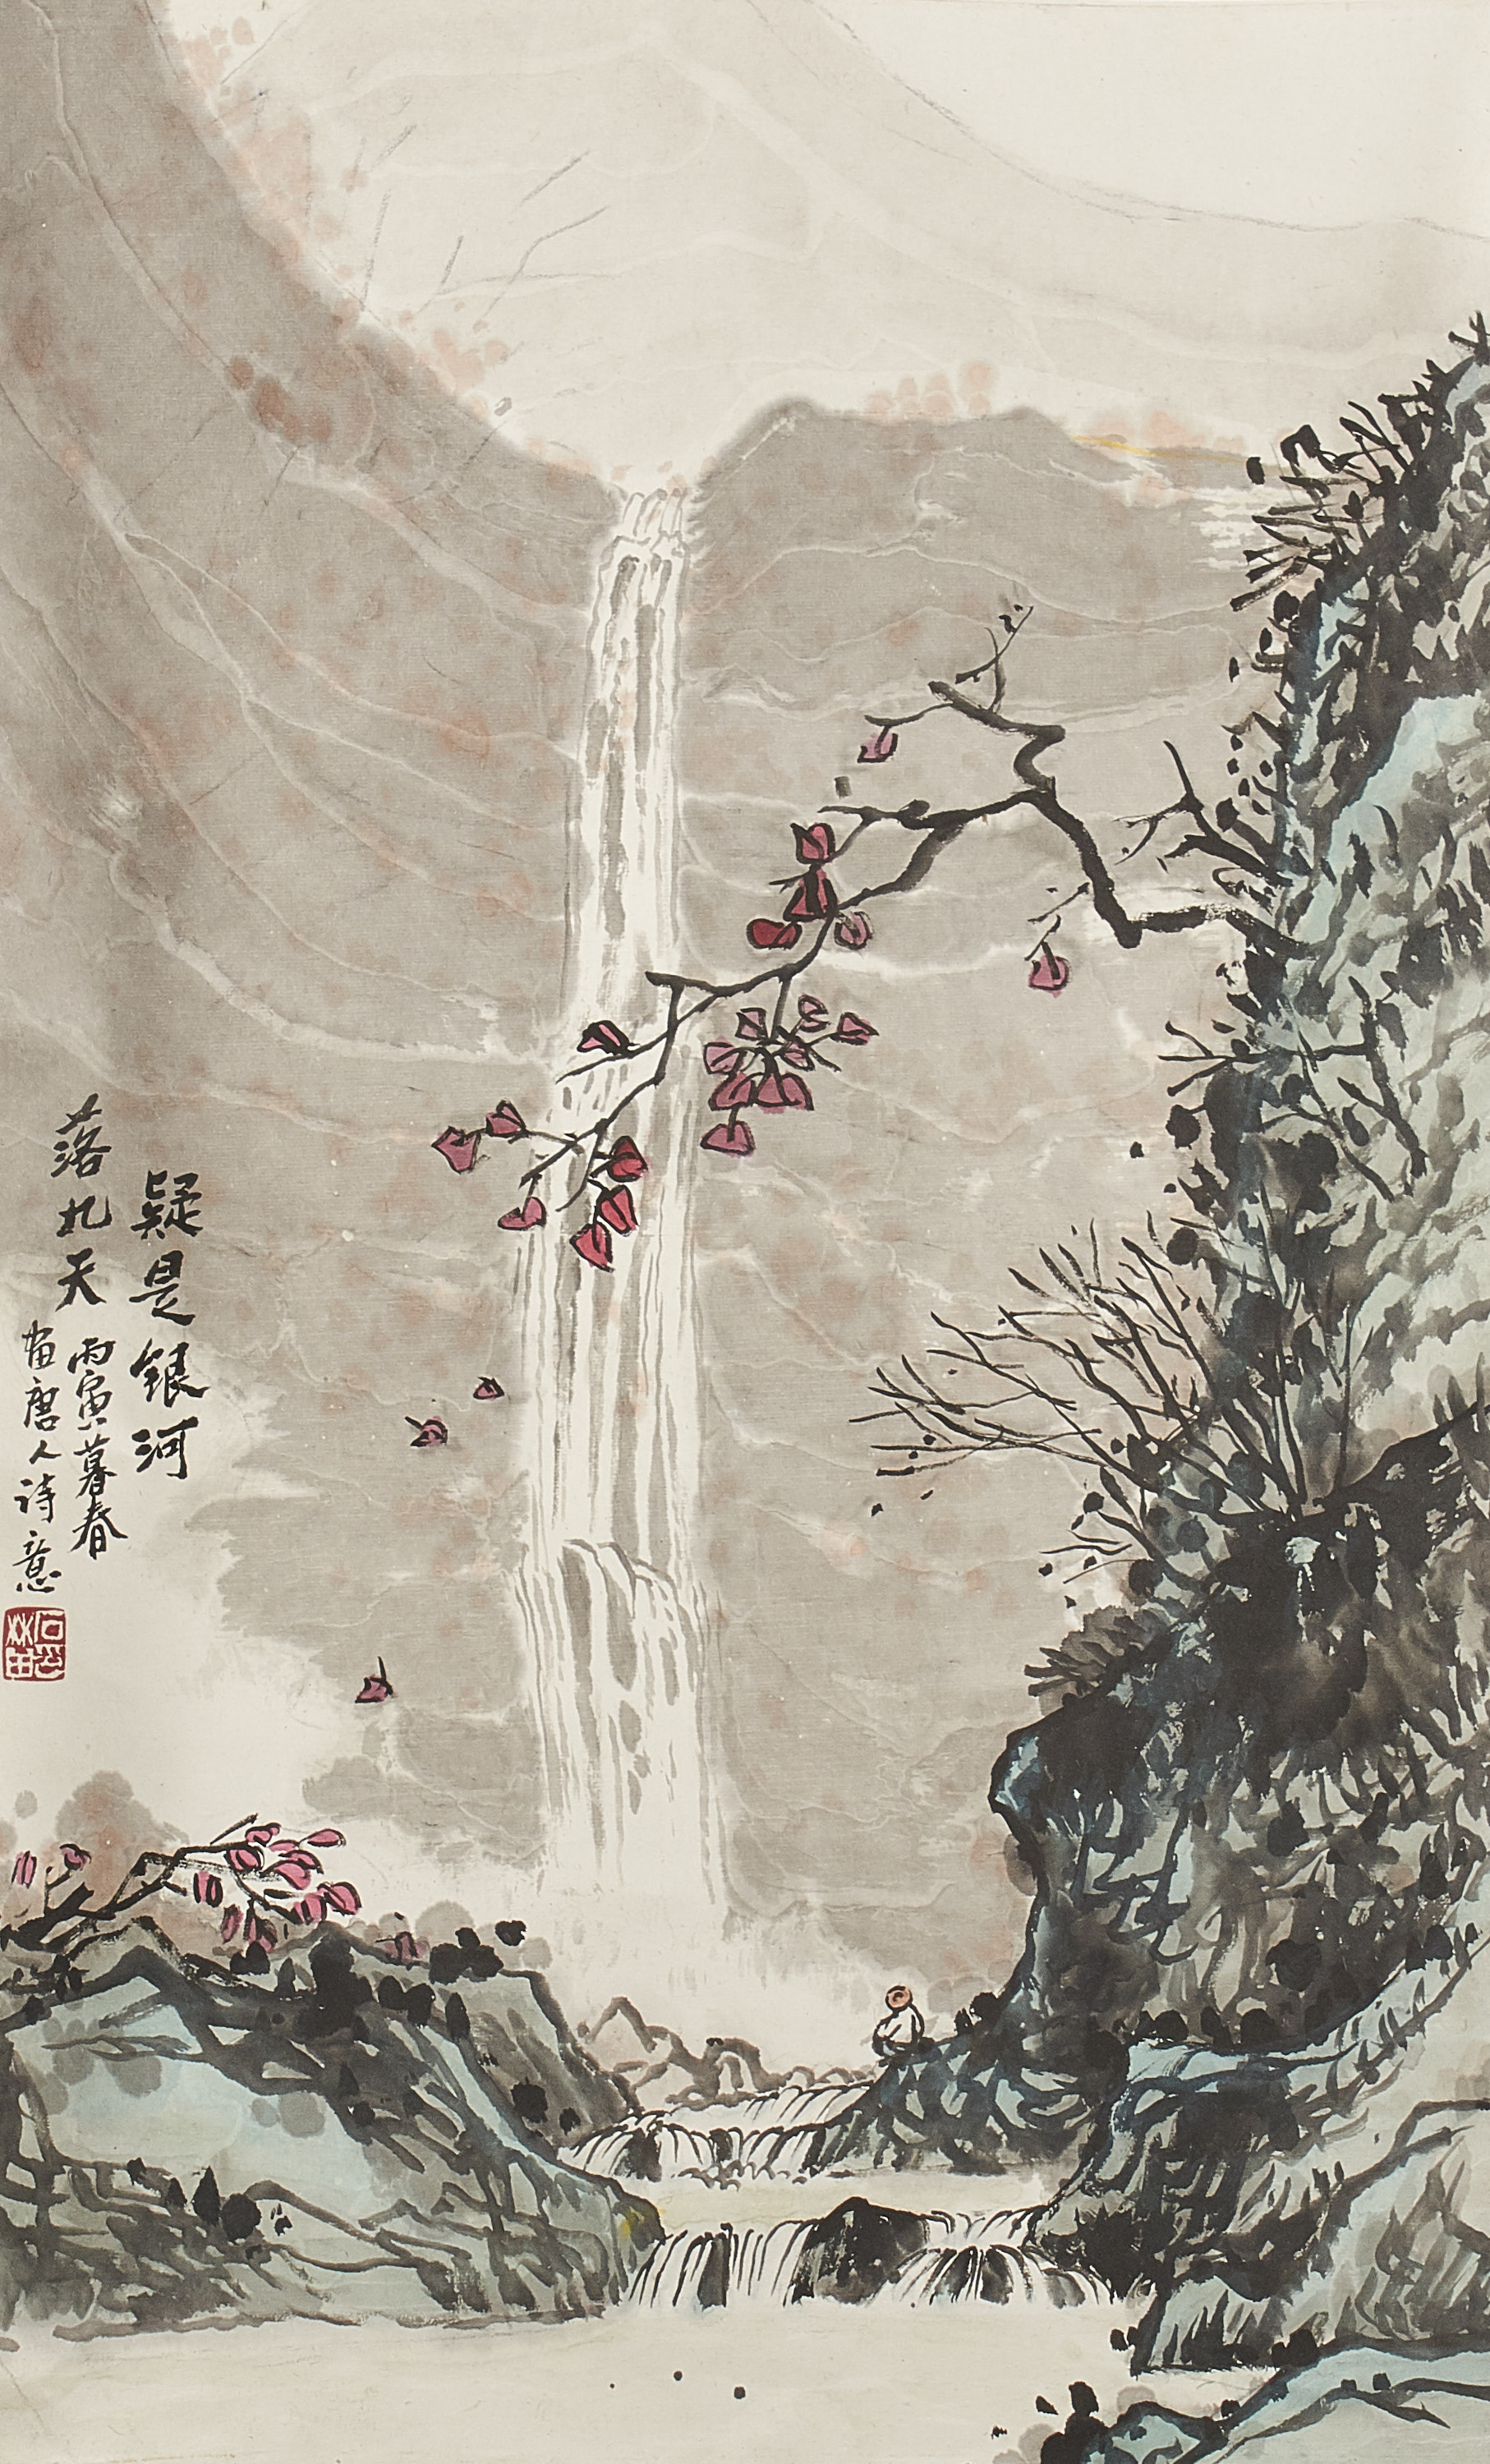 疑是銀河
落九天
丙寅暮春
画唐人诗意